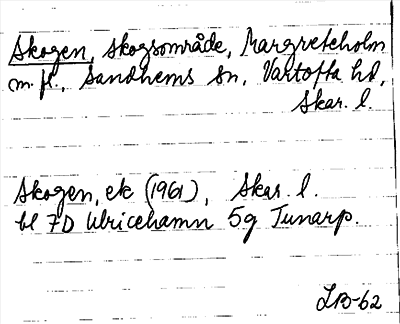 Skogen, skogsområde, Margreteholm
m. fl., Sandhems sn, Vartofta hd,
Skar. l.
Skogen, ek (1961), Skar. l.
bl 7D Ulricehamn 5g Tunarp.
LB-62